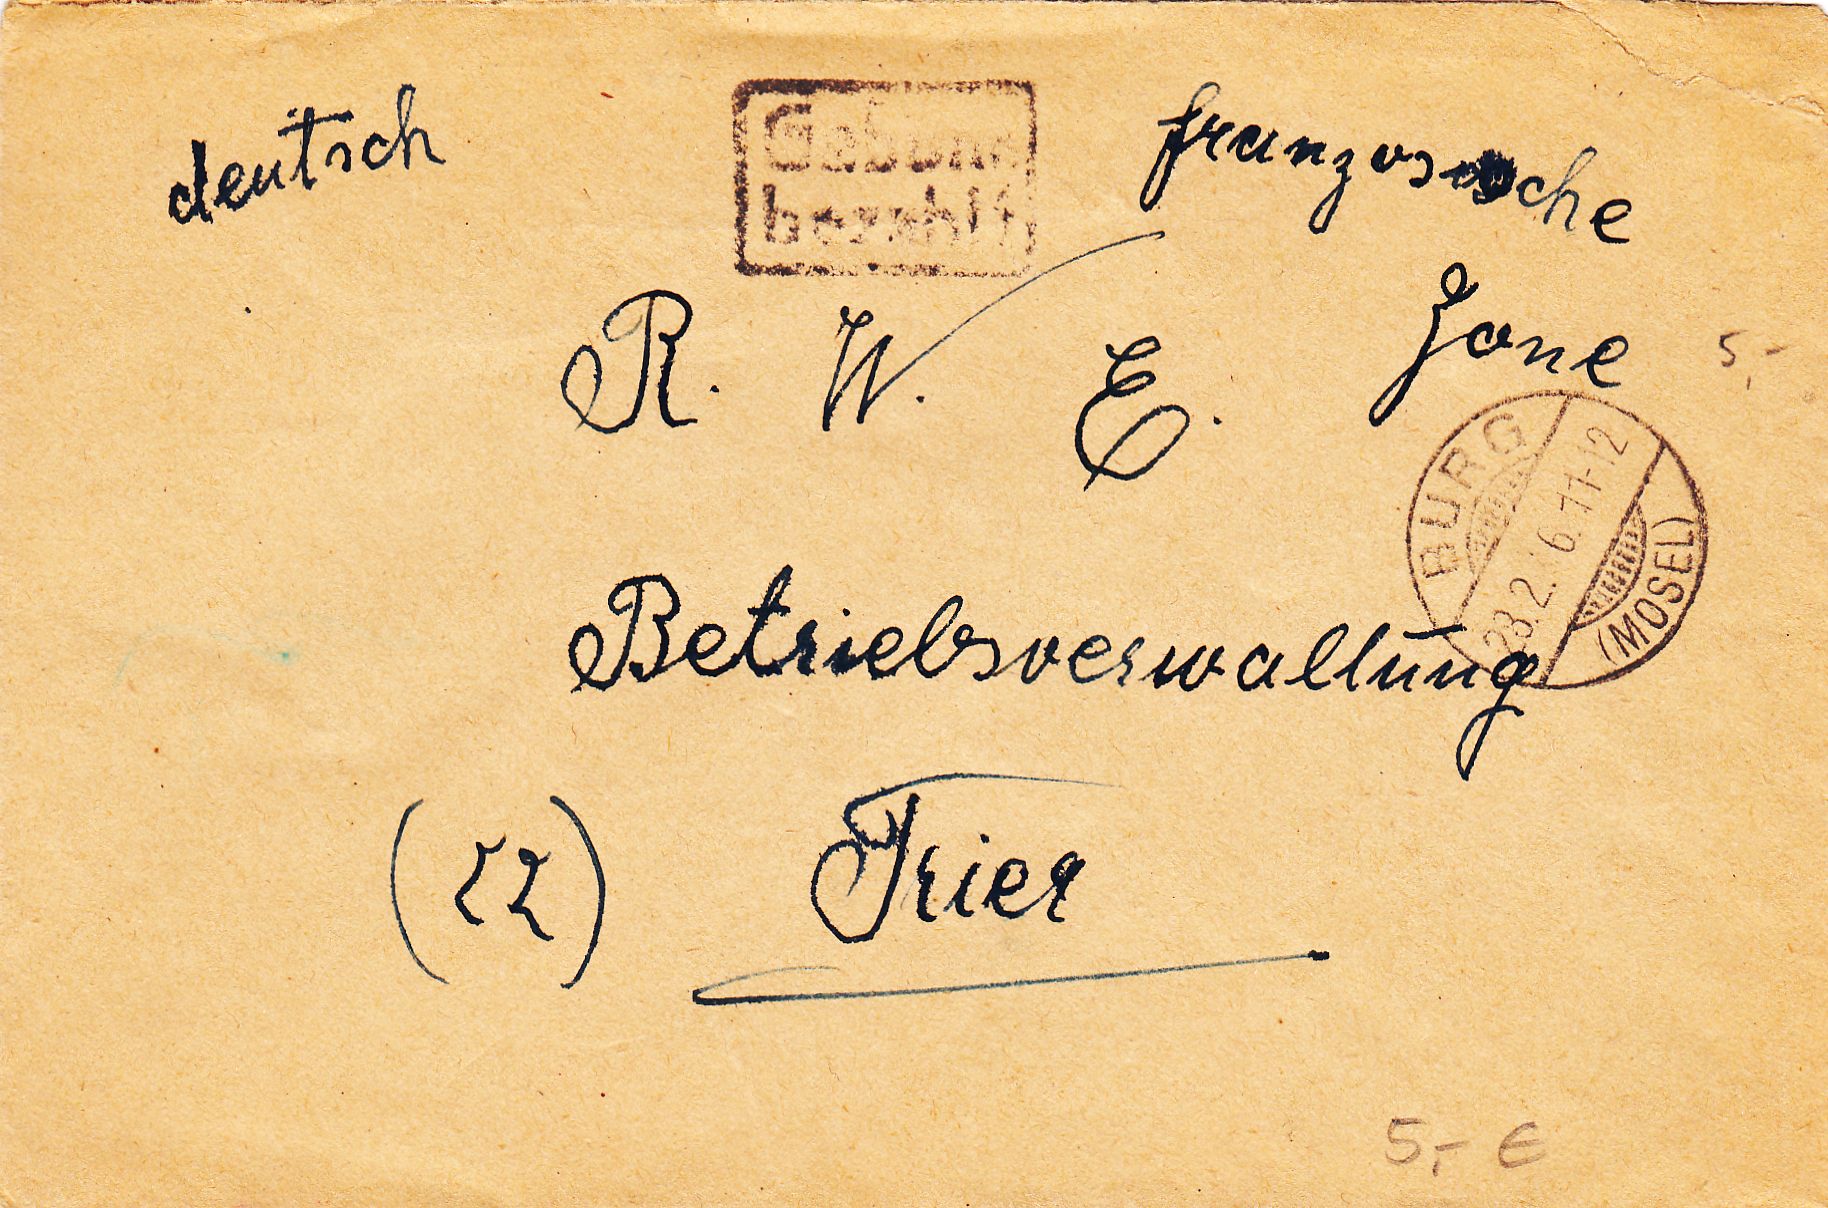 deutsch
Gebühr
bezahlt
französche
Zone
5,-
R. W. E.
BURG
23.2.46.11-12
(MOSEL)
Betriebsverwaltung
(22) Trier
5,- €